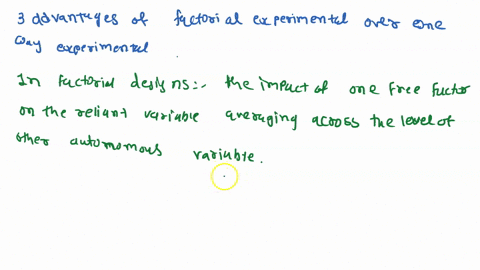 3 advantages of factorial experimental over one
way experimental
In factorial designs:- the impact of one free factor
on the reliant variable averaging across the level of
other autonomous variable.